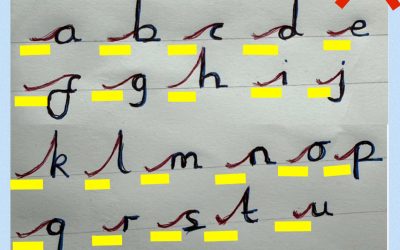 a b c d e
f g h i j
k l m n o p
q r s t u